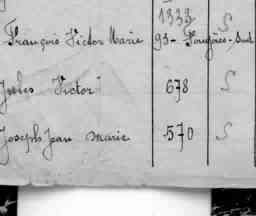 1333 S
François Victor Marie 93 - Fougères-Sud
Jules Victor 678 S
Joseph Jean Marie 570 S